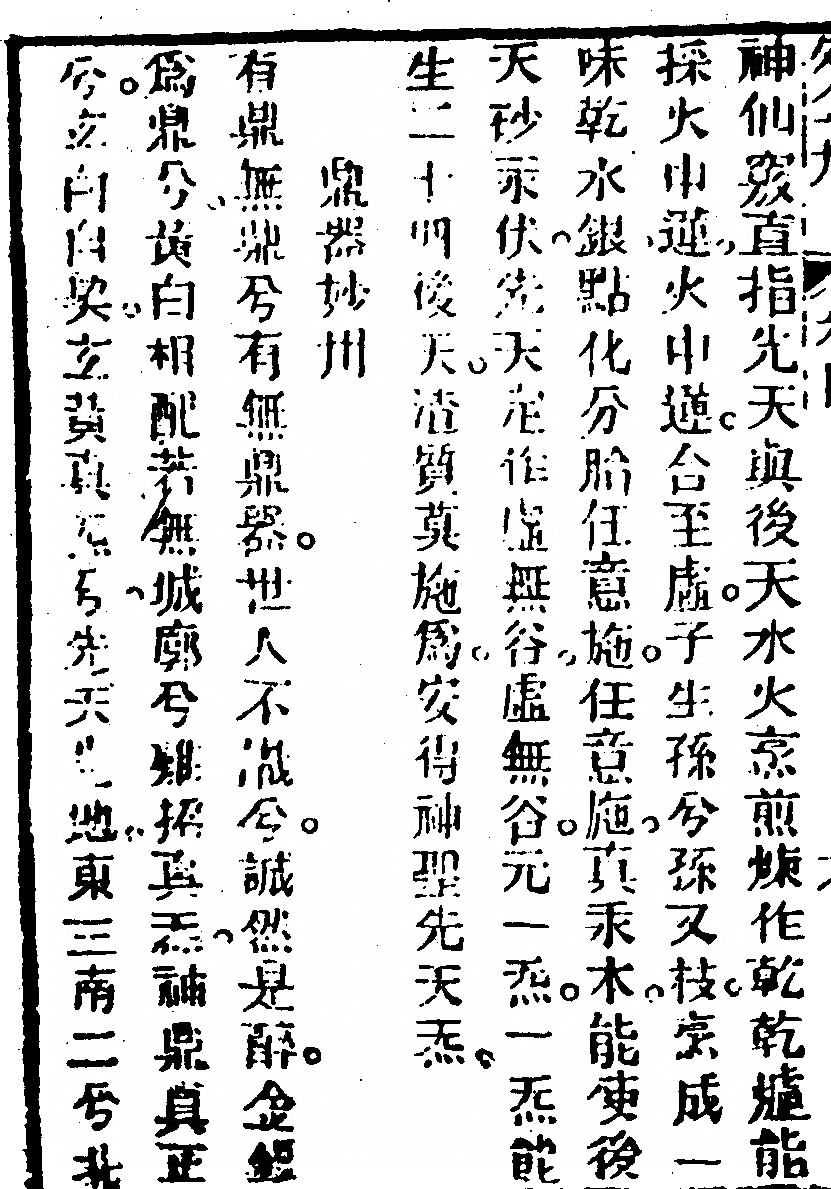 神仙竅直指先天與後天水火烹煎煉作乾乾爐能
採火中蓮火中蓮台至虛子生孫兮孫又枝烹成一
味乾水銀點化分胎任意施任意施真汞木能使後
天砂汞伏先天產作虛無谷虛無谷元一炁一炁能
生二十四後天渣質莫施為安得神聖先天炁
鼎器妙州
有鼎無鼎兮有無鼎器世人不識兮誠然是醉金鼎
為鼎兮黃白相配若無城廓兮難招真炁神鼎真正
兮玄白白契玄黃真炁兮先天地東三南二兮北